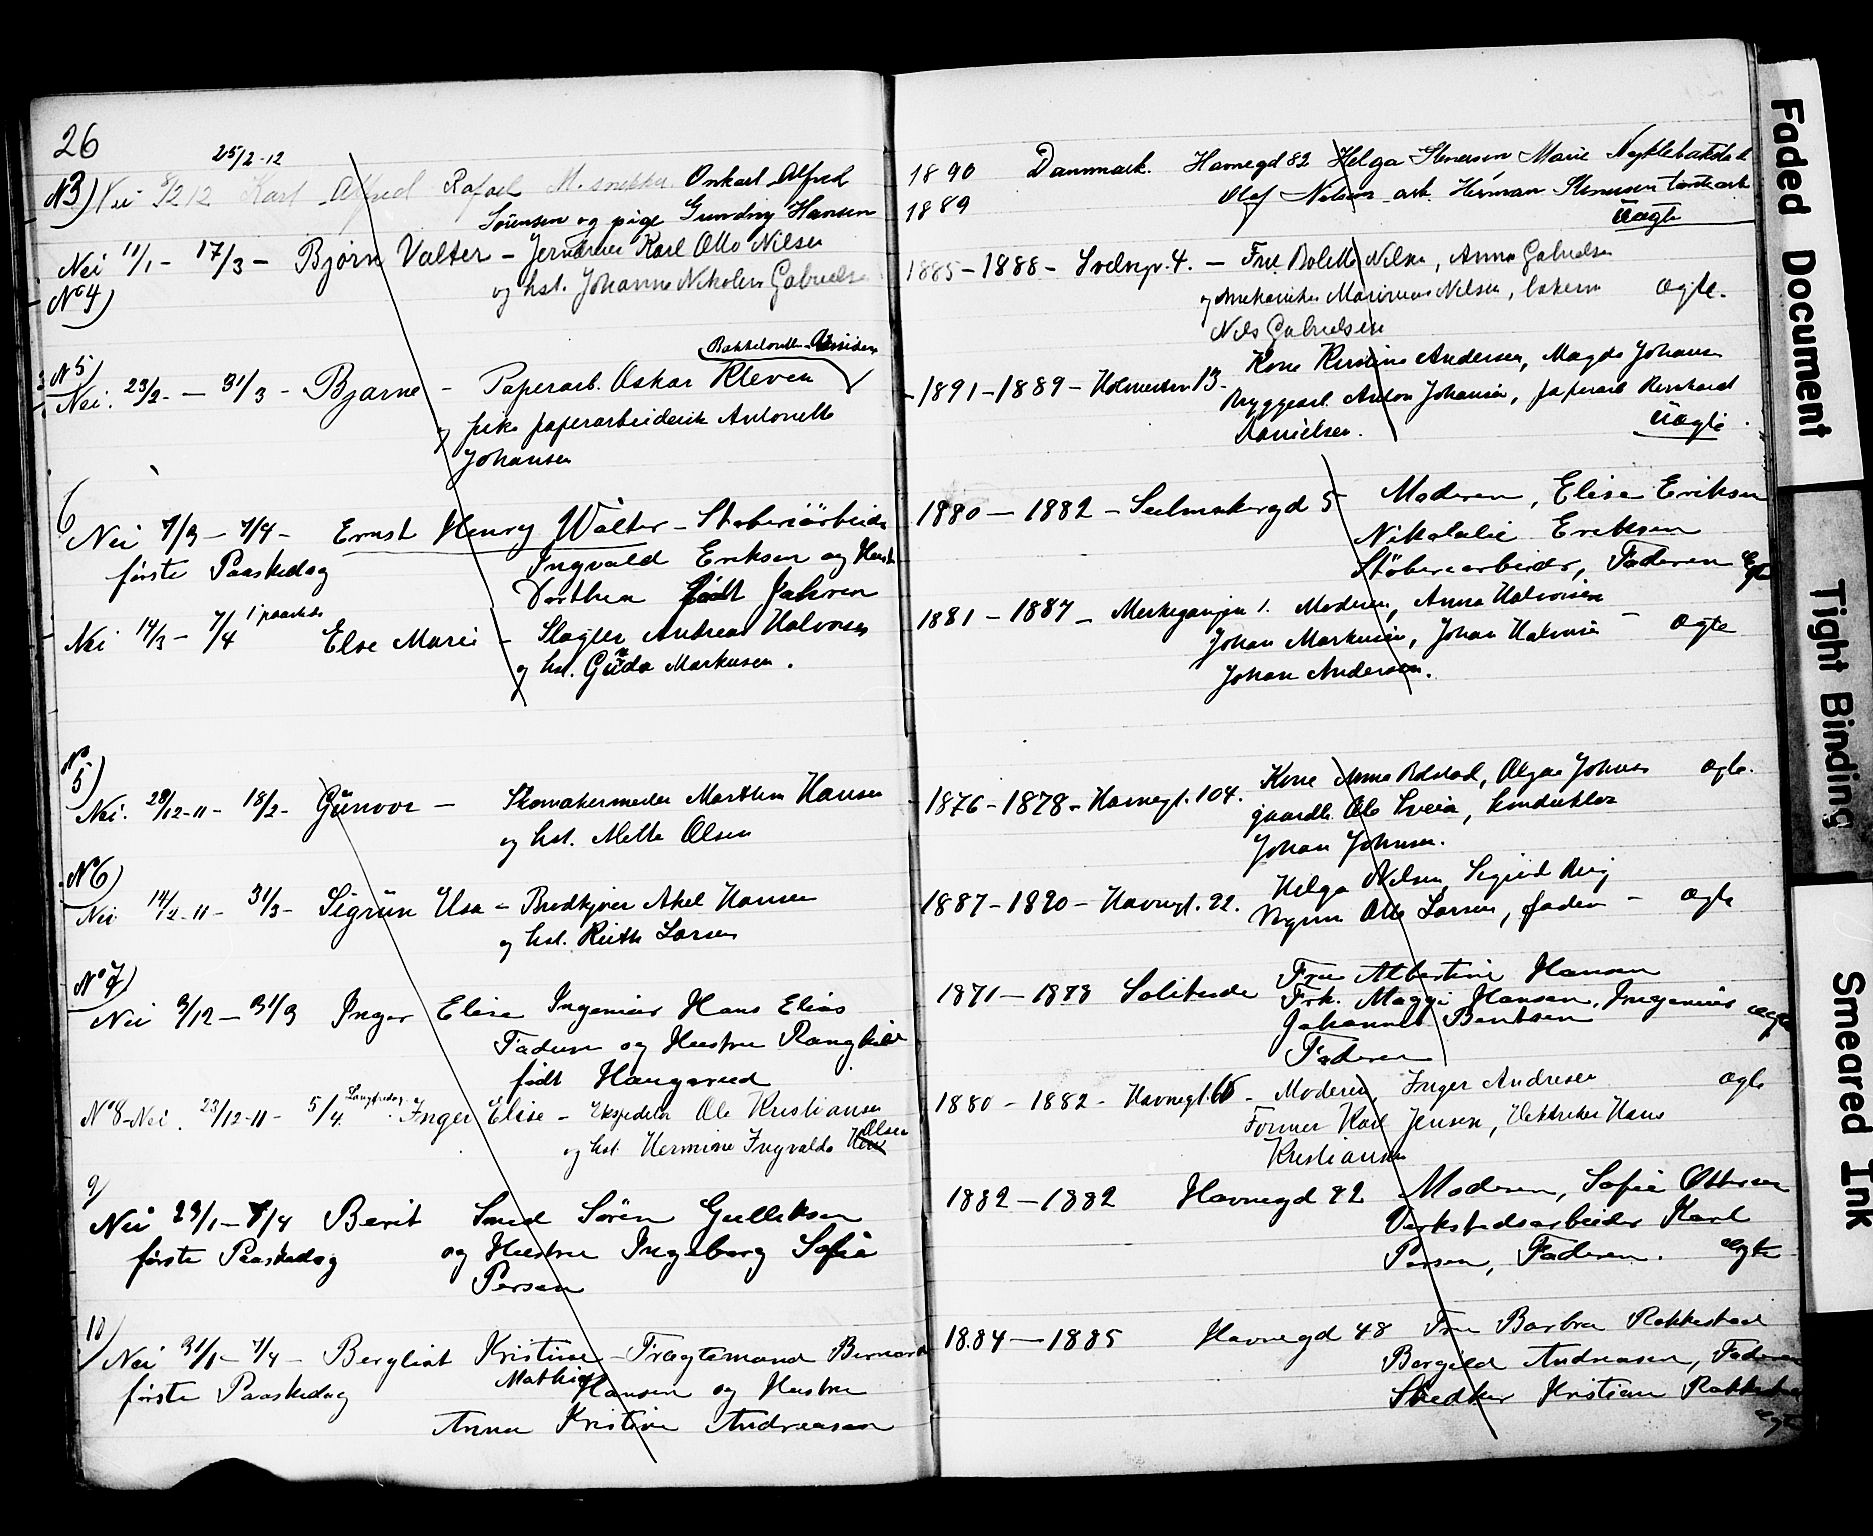 26
25/2-12
N3) Nei 8/2 12 Karl Alfred Rafael M. snekker Onkart Alfred
Sørensen og pige Gundny Hansen
Nei 11/1 - 17/3 - Bjørn Valter - Karl Otto Nilsen
No 4)
og hst. Johanne Nikoline Gabrielsen
N 5)
Nei. 23/2 - 31/3 - Bjarne - Paperarb. Oskar Kleven
og pike paperarbeiderske Antonette
Johansen
6
Nei 7/3 - 7/4 - Ernst Henry Walter - Støberiarbeider
første Paaskedag Ingvald Eriksen og Hustru
Dorthea født Jahren
Nei 14/3 - 7/4 1 paaskedag Else Marie - Slagter Andreas Halvorsen
og hst. Gunda Markusen.
No 5)
Nei. 28/12-11 - 18/2 - Gunvor - Skomakermester Marthin Hansen
og hst. Mette Olsen
No 6)
Nei 14/2-11 - 31/3 - Sigrun Elsa - Brødkjører Aksel Hansen
og hst. Ruth Larsen
No 7)
Nei 3/12 - 31/3 Inger Elise Ingeniør Hans Elias
Faderen og Hustru Ranghild
født Haugerud
No 8 - Nei. 23/12-11 - 5/4. Langfredag Inger Elise - Ekspeditør Ole Kristiansen
og hst. Hermine Ingvalda Olsen
9/
Nei 23/1 - 7/4 Berit Smed Søren Gulliksen
første Paaskedag og Hustru Ingeborg Sofie
Persen
10/
Nei 31/1 - 7/4 - Bergliot Kristine - Fragtemand Bernard
første Paaskedag Mathias Hansen og Hustru
Anna Kristine Andreasen
1890 Danmark. Havnegd 82 Helga Stenersen Marie
1889 Olaf Nelson arb. Herman Stenersen
Uægte
1885 - 1888 - 4. - Fru Bolette Nilsen, Anna Gabrielsen
og mekaniker Marinius Nilsen, Ægte.
Nils Gabrielsen
1891 - 1889 - Holmestrn 13 - Kone Kristine Andersen, Magda Johansen
Bryggearb. Anton Johansen, paperarb Bernhard
Danielsen. Uægte.
1880 - 1882 - Seilmakergd 5 Moderen, Elise Eriksen
Nikolalie Eriksen
Støberiarbeider, Faderen Egte
1881 - 1887 - 1. Moderen, Anna Halvorsen
Johan Markusen, Johan Halvorsen - Ægte
Johan Andersen.
1876 - 1878 - Havnegt. 104. Kone Anna Rolstad, Olga Johnsen Ægte.
gaardbr. Ole Sveia, konduktør
Johan Johnsen.
1887 - 1890 - Havnegt. 22. Helga Nilsen, Sigrid Berg
Bygm Otto Larsen, fader - Ægte
1871 - 1878 Solitude Fru Albertine Hansen
Frk. Maggi Hansen, Ingeniør ægte
Johannes Bentsen
Faderen
1880 - 1882 - Havnegt. 66 - Moderen, Inger Andresen Ægte
Former Karl Jensen, Hans
Kristiansen
1882 - 1882 Havnegd 82 Moderen, Sofie Ottersen
Verkstedsarbeider Karl
Persen, Faderen. ægte
1884 - 1885 Havnegd 48 Fru Barbra Rakkestad
Bergild Andreasen, Faderen
Snedker Kristian Rakkestad
ægte
Faded Document
Tight Binding
Smeared Ink